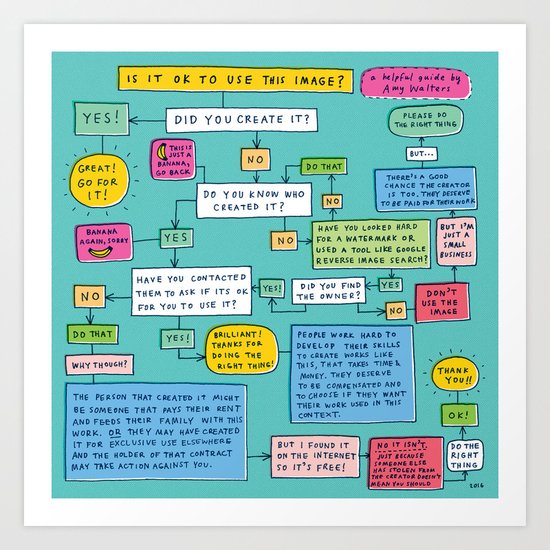 IS IT OK TO USE THIS IMAGE?
a helpful guide by
Amy Walters
YES!
DID YOU CREATE IT?
PLEASE DO
THE RIGHT THING
GREAT!
GO FOR
IT!
THIS IS
JUST A
BANANA,
GO BACK
NO
DO THAT
BUT...
DO YOU KNOW WHO
CREATED IT?
NO
THERE'S A GOOD
CHANCE THE CREATOR
IS TOO. THEY DESERVE
TO BE PAID FOR THEIR WORK
BANANA
AGAIN, SORRY
YES
NO
HAVE YOU LOOKED HARD
FOR A WATERMARK OR
USED A TOOL LIKE GOOGLE
REVERSE IMAGE SEARCH?
BUT I'M
JUST A
SMALL
BUSINESS
NO
HAVE YOU CONTACTED
THEM TO ASK IF ITS OK
FOR YOU TO USE IT?
YES!
DID YOU FIND
THE OWNER?
YES
NO
DON'T
USE THE
IMAGE
DO THAT
YES!
BRILLIANT!
THANKS FOR
DOING THE
RIGHT THING!
PEOPLE WORK HARD TO
DEVELOP THEIR SKILLS
TO CREATE WORKS LIKE
THIS, THAT TAKES TIME &
MONEY. THEY DESERVE
TO BE COMPENSATED AND
TO CHOOSE IF THEY WANT
THEIR WORK USED IN THIS
CONTEXT.
WHY THOUGH?
THANK
YOU!!
THE PERSON THAT CREATED IT MIGHT
BE SOMEONE THAT PAYS THEIR RENT
AND FEEDS THEIR FAMILY WITH THIS
WORK. OR THEY MAY HAVE CREATED
IT FOR EXCLUSIVE USE ELSEWHERE
AND THE HOLDER OF THAT CONTRACT
MAY TAKE ACTION AGAINST YOU.
OK!
BUT I FOUND IT
ON THE INTERNET
SO IT'S FREE!
NO IT ISN'T.
JUST BECAUSE
SOMEONE ELSE
HAS STOLEN FROM
THE CREATOR DOESN'T
MEAN YOU SHOULD
DO THE
RIGHT
THING
2016